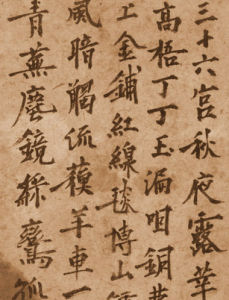 三十六宮秋夜露華
高梧丁丁玉漏咽銅
上金鋪紅線毯博山
風暗觸流蘇羊車一
青蕪塵鏡綵鸞孤